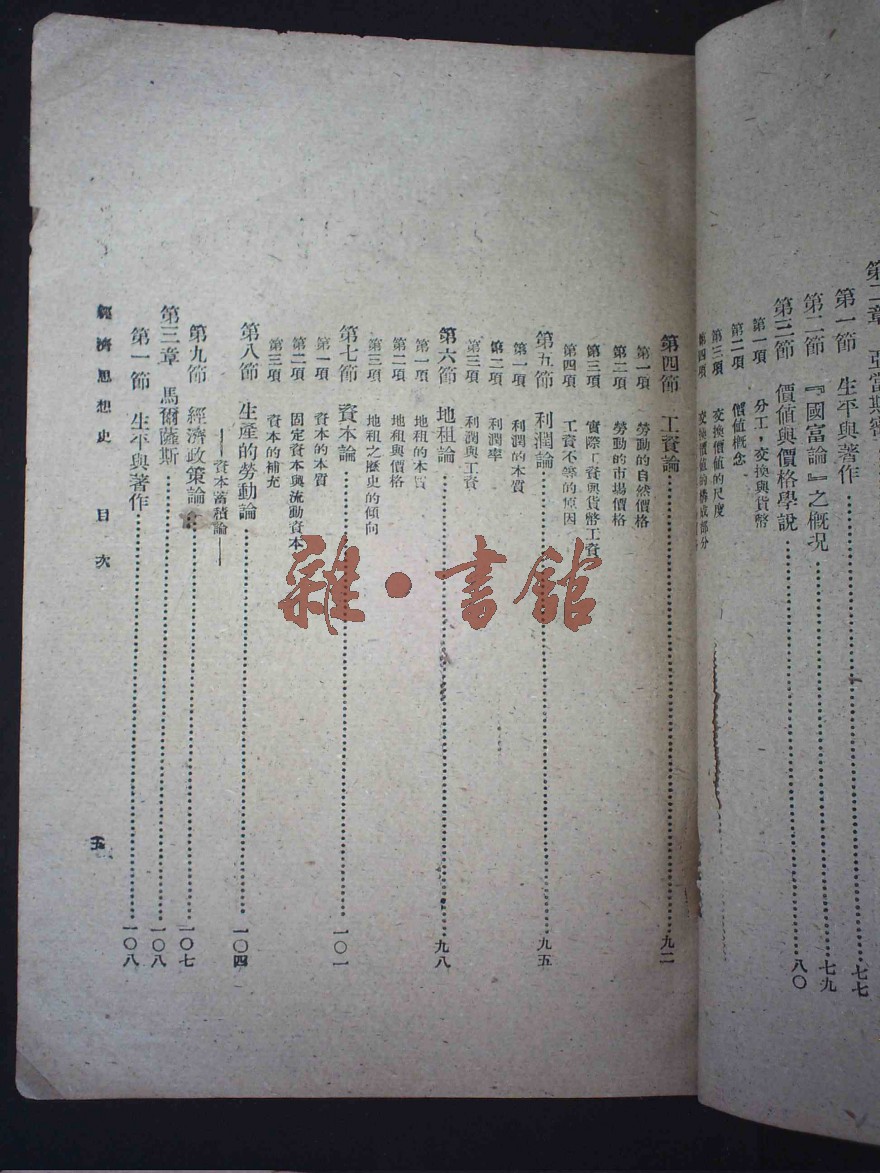 第二章　亞當斯密
第一節　生平與著作……七七
第二節　『國富論』之概況……七九
第三節　價値與價格學說……八〇
第一項　分工，交換與貨幣
第二項　價値概念
第三項　交換價値的尺度
第四項　交換價値的構成部分
第四節　工資論……九二
第一項　勞動的自然價格
第二項　勞動的市場價格
第三項　實際工資與貨幣工資
第四項　工資不等的原因
第五節　利潤論……九五
第一項　利潤的本質
第二項　利潤率
第三項　利潤與工資
第六節　地租論……九八
第一項　地租的本質
第二項　地租與價格
第三項　地租之歷史的傾向
第七節　資本論……一〇一
第一項　資本的本質
第二項　固定資本與流動資本
第三項　資本的補充
第八節　生產的勞動論……一〇四
——資本蓄積論——
第九節　經濟政策論……一〇七
第三章　馬爾薩斯……一〇八
第一節　生平與著作……一〇八
經濟思想史　目次
五
雜·書館